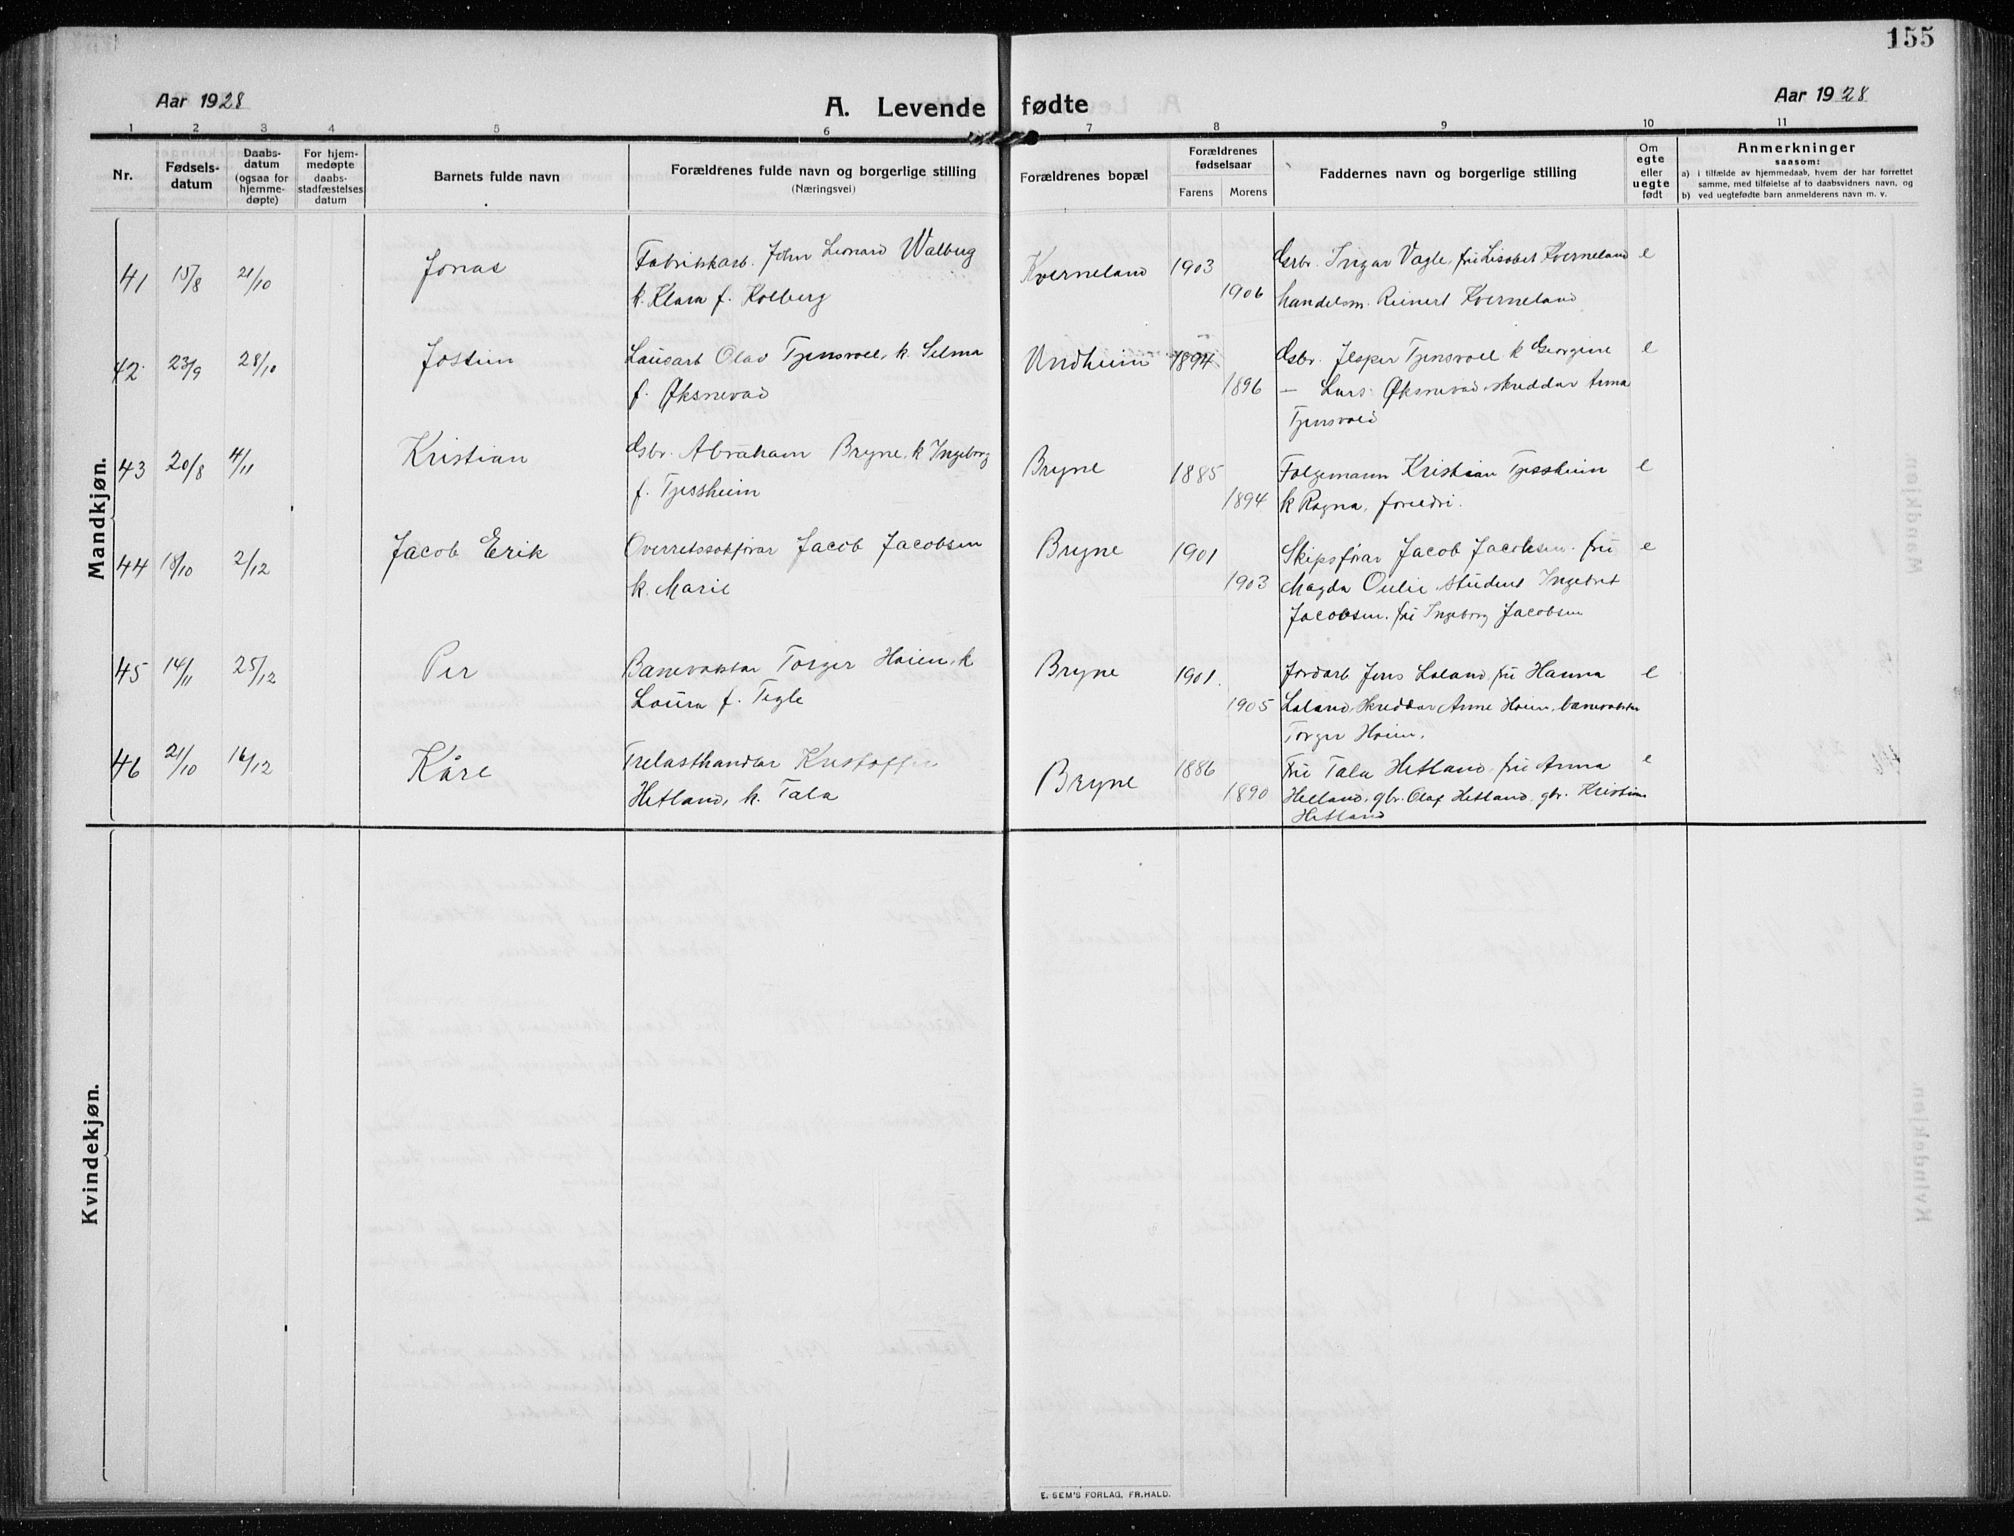 155
Aar 1928
A. Levende fødte
Aar 1928
1 2 3 4 5 6 7 8 9 10 11
Nr.
Fødsels-
datum
Daabs-
datum
(ogsaa for
hjemme-
døpte)
For hjem-
medøpte
daabs-
stadfæstelses
datum
Barnets fulde navn
Forældrenes fulde navn og borgerlige stilling
(Næringsvei)
Forældrenes bopæl
Forældrenes
fødselsaar
Farens Morens
Faddernes navn og borgerlige stilling
Om
egte
eller
uegte
født
Anmerkninger
saasom:
a) i tilfælde av hjemmedaab, hvem der har forrettet
samme, med tilføielse af to daabsvidners navn, og
b) ved uegtefødte barn anmelderens navn m. v.
Mandkjøn.
41 15/8 21/10 Jonas Fabrikkarb. John Leonard Walberg Kverneland 1903 Gsbr. Ingar Vagle, fru Lisabet Kverneland e
k. Klara f. Kolberg 1906 handelsm. Reinert Kverneland
42 23/9 28/10 Jostein Lausarb Olav Tjensvoll, k. Selma Undheim 1894 Gsbr. Jesper Tjensvoll k Georgine e
f. Øksnevad 1896 — Lars Øksnevad, skreddar Anna
Tjensvold
43 20/8 4/11 Kristian Gsbr. Abraham Bryne, k Ingeborg Bryne 1885 Folgemann Kristian Tjessheim e
f. Tjessheim 1894 k Ragna, foreldri.
44 18/10 2/12 Jacob Erik Overretssakførar Jacob Jacobsen Bryne 1901 Skipsførar Jacob Jacobsen, fru e
k. Marie 1903 Magda Oulie, student Ingebret
Jacobsen, fru Ingeborg Jacobsen
45 14/11 25/12 Per Banevaktar Torger Høien, k Bryne 1901. Jordarb Jens Laland, fru Hanna e
Laura f. Tegle 1905 Laland, skreddar Arne Høien, banevaktar
Torger Høien.
46 21/10 16/12 Kåre Trelasthandlar Kristoffer Bryne 1886 Fru Tala Hetland, fru Anna e
Hetland, k. Tala 1890 Helland, gbr. Olaf Hetland, gbr. Kristian
Hetland
Kvindekjøn.
E. SEM'S FORLAG, FR.HALD.